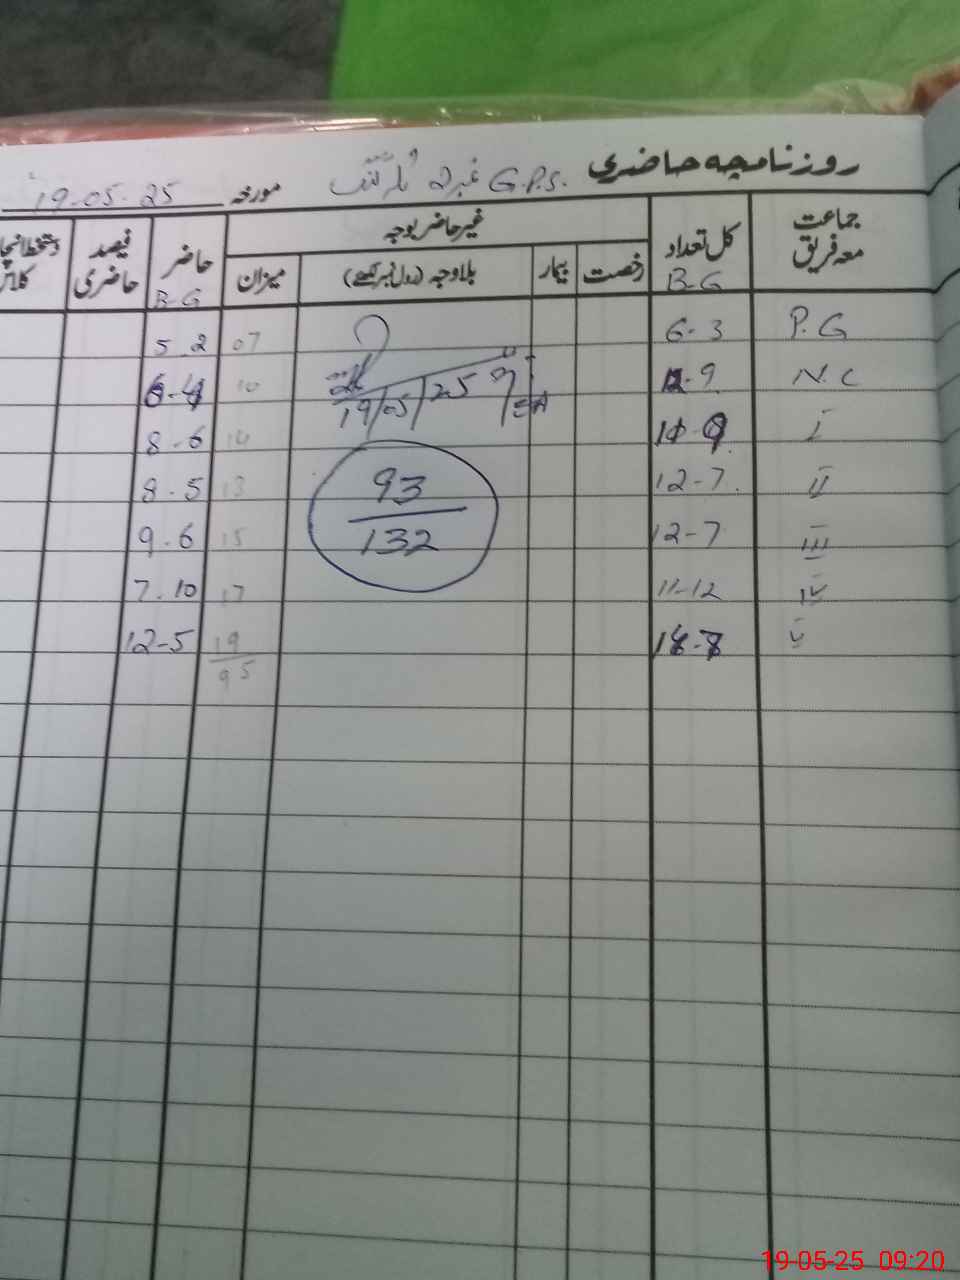 روزنامچہ حاضری G.P.S. نمبر 2 مورخہ 19-05-25
جماعت معہ فریق کل تعداد غیر حاضر بوجہ حاضر فیصد حاضری
رخصت بیمار بلاوجہ (رول نمبر لکھیے) میزان
B-G B-G
P.G 6-3 07 5.2
N.C 12-9 10 6-4
I 14 8-6
19/05/25
II 12-7 13 8.5
93
132
III 12-7 15 9.6
IV 11-12 17 7.10
V 19 12-5
95
19-05-25 09:20